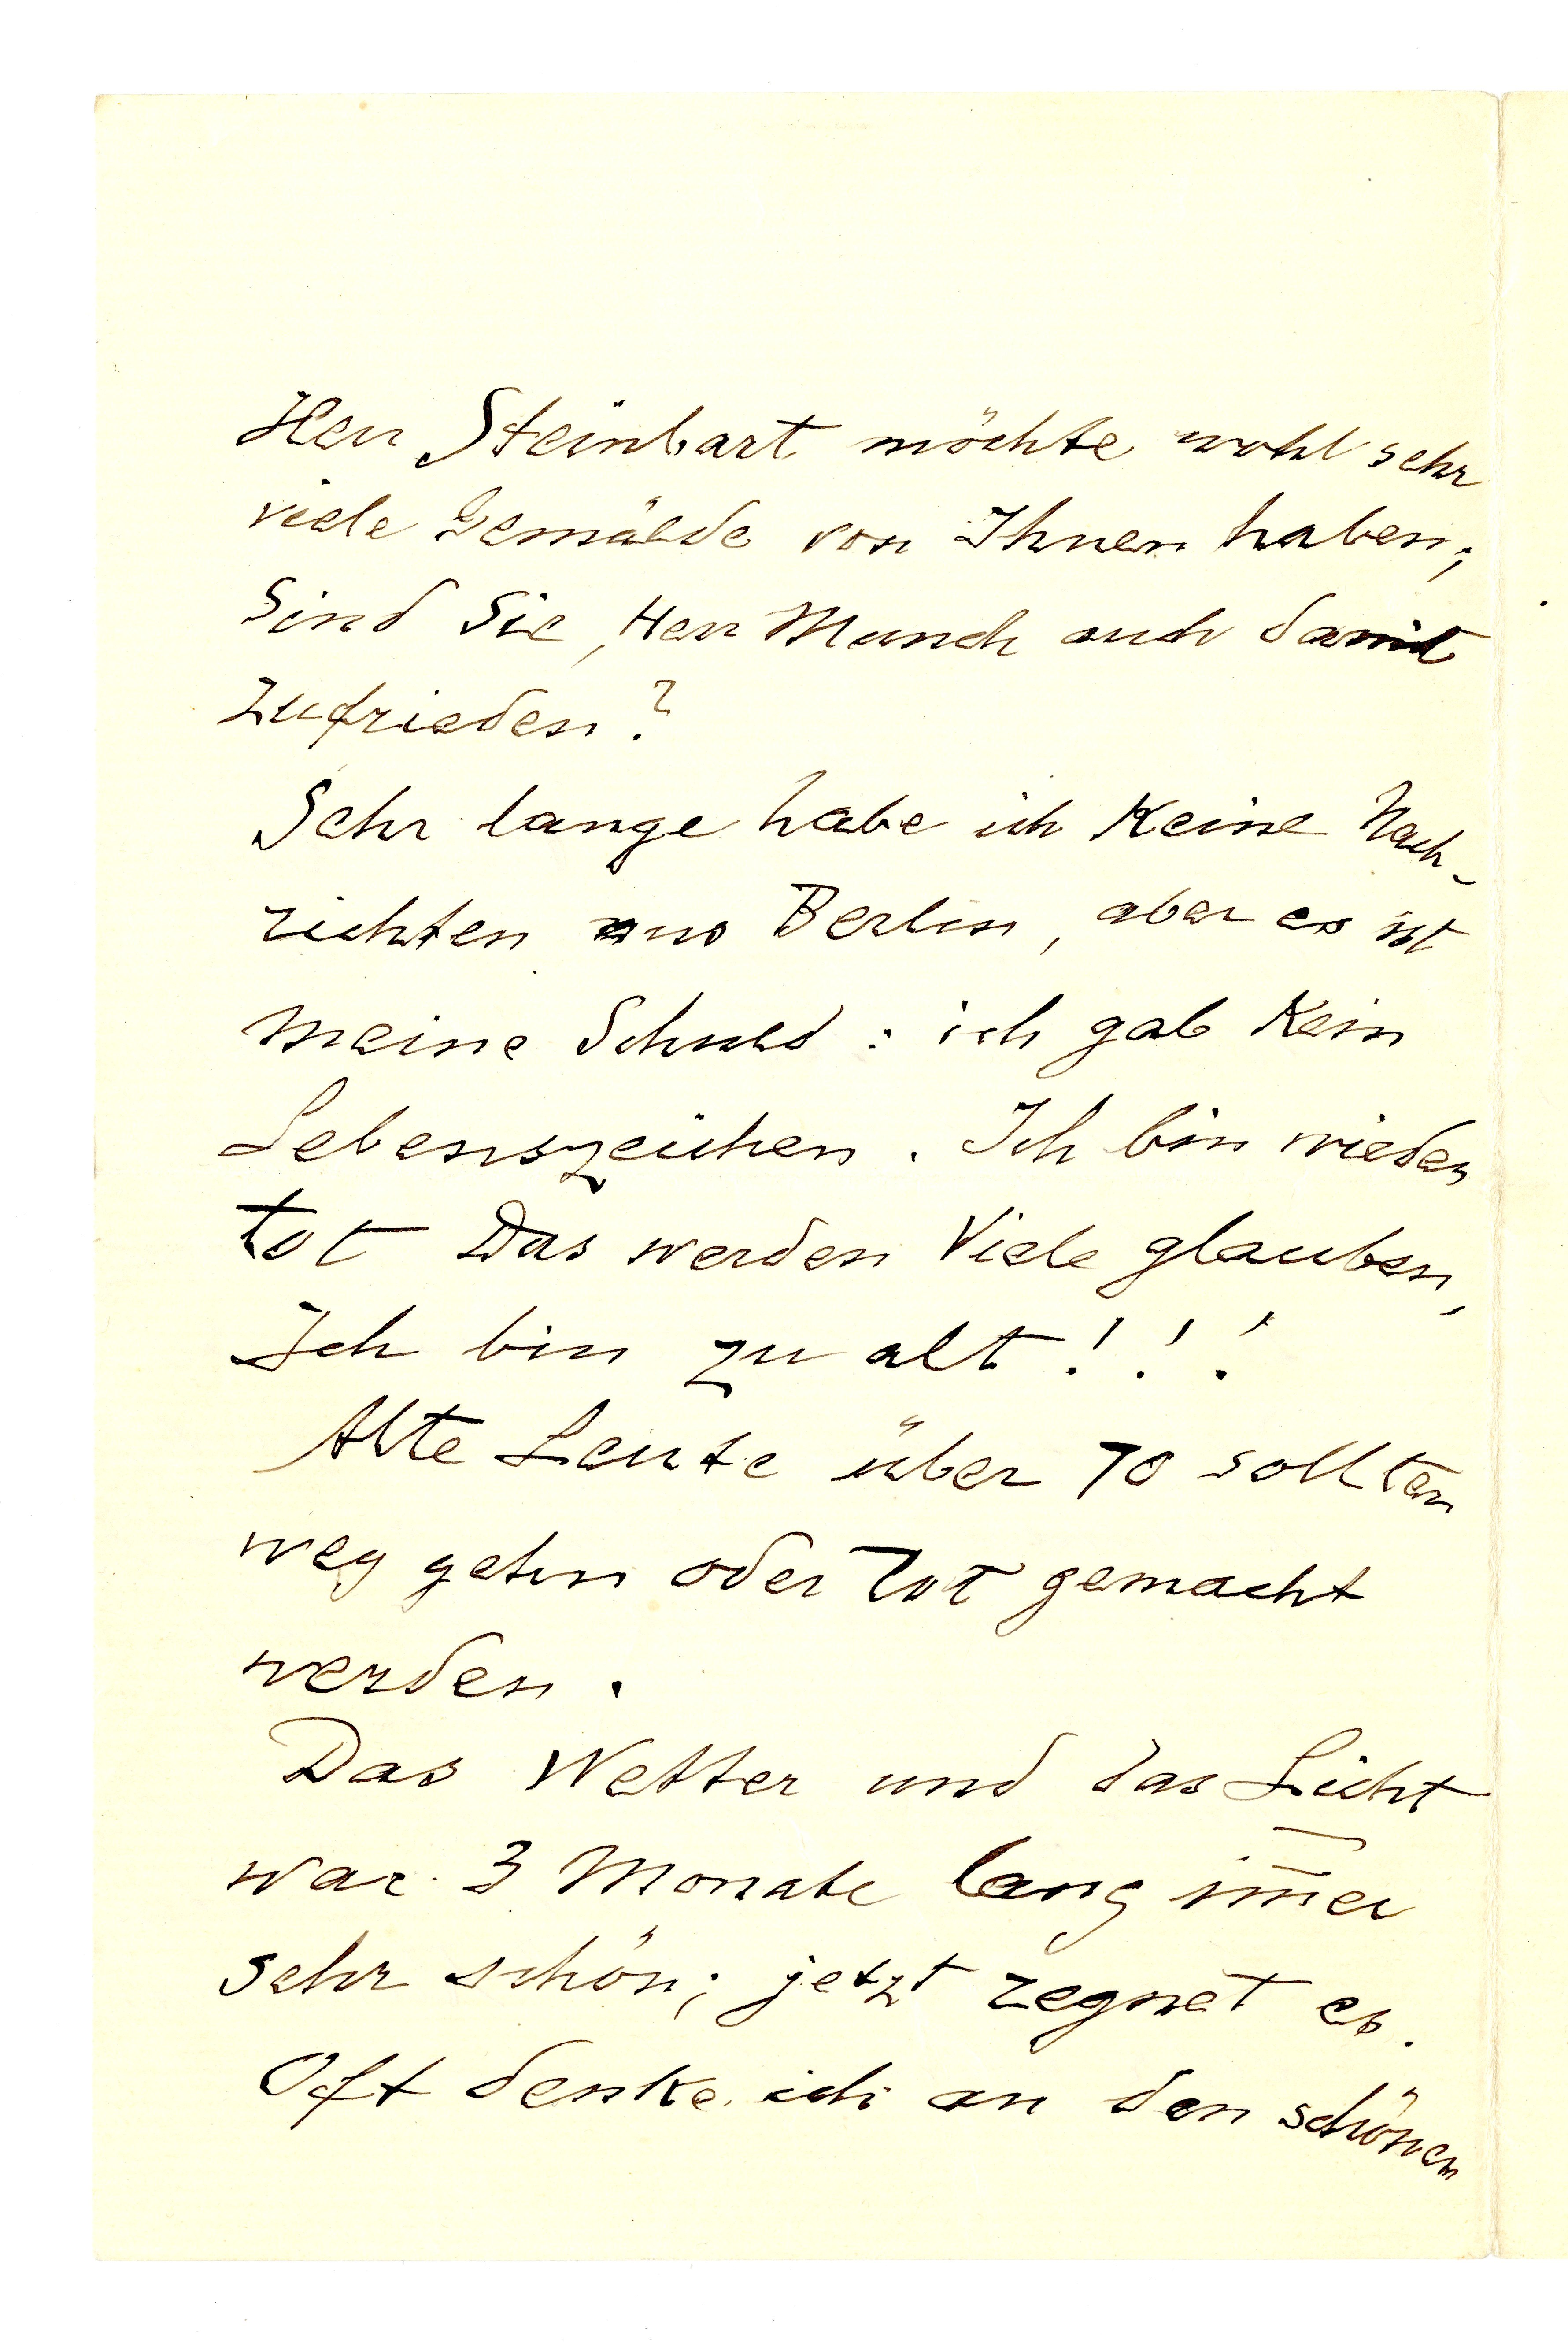 Herr Steinbart möchte wohl sehr
viele Gemälde von Ihnen haben;
sind Sie, Herr Munch auch damit
zufrieden?
Sehr lange habe ich keine Nach-
richten aus Berlin, aber es ist
meine Schuld: ich gab kein
Lebenszeichen. Ich bin wieder
tot Das werden Viele glauben,
Ich bin zu alt!!!
Alte Leute über 70 sollten
weg gehn oder tot gemacht
werden.
Das Wetter und das Licht
war 3 Monate lang im̅er
sehr schön; jetzt regnet es.
Oft denke ich an den schönen